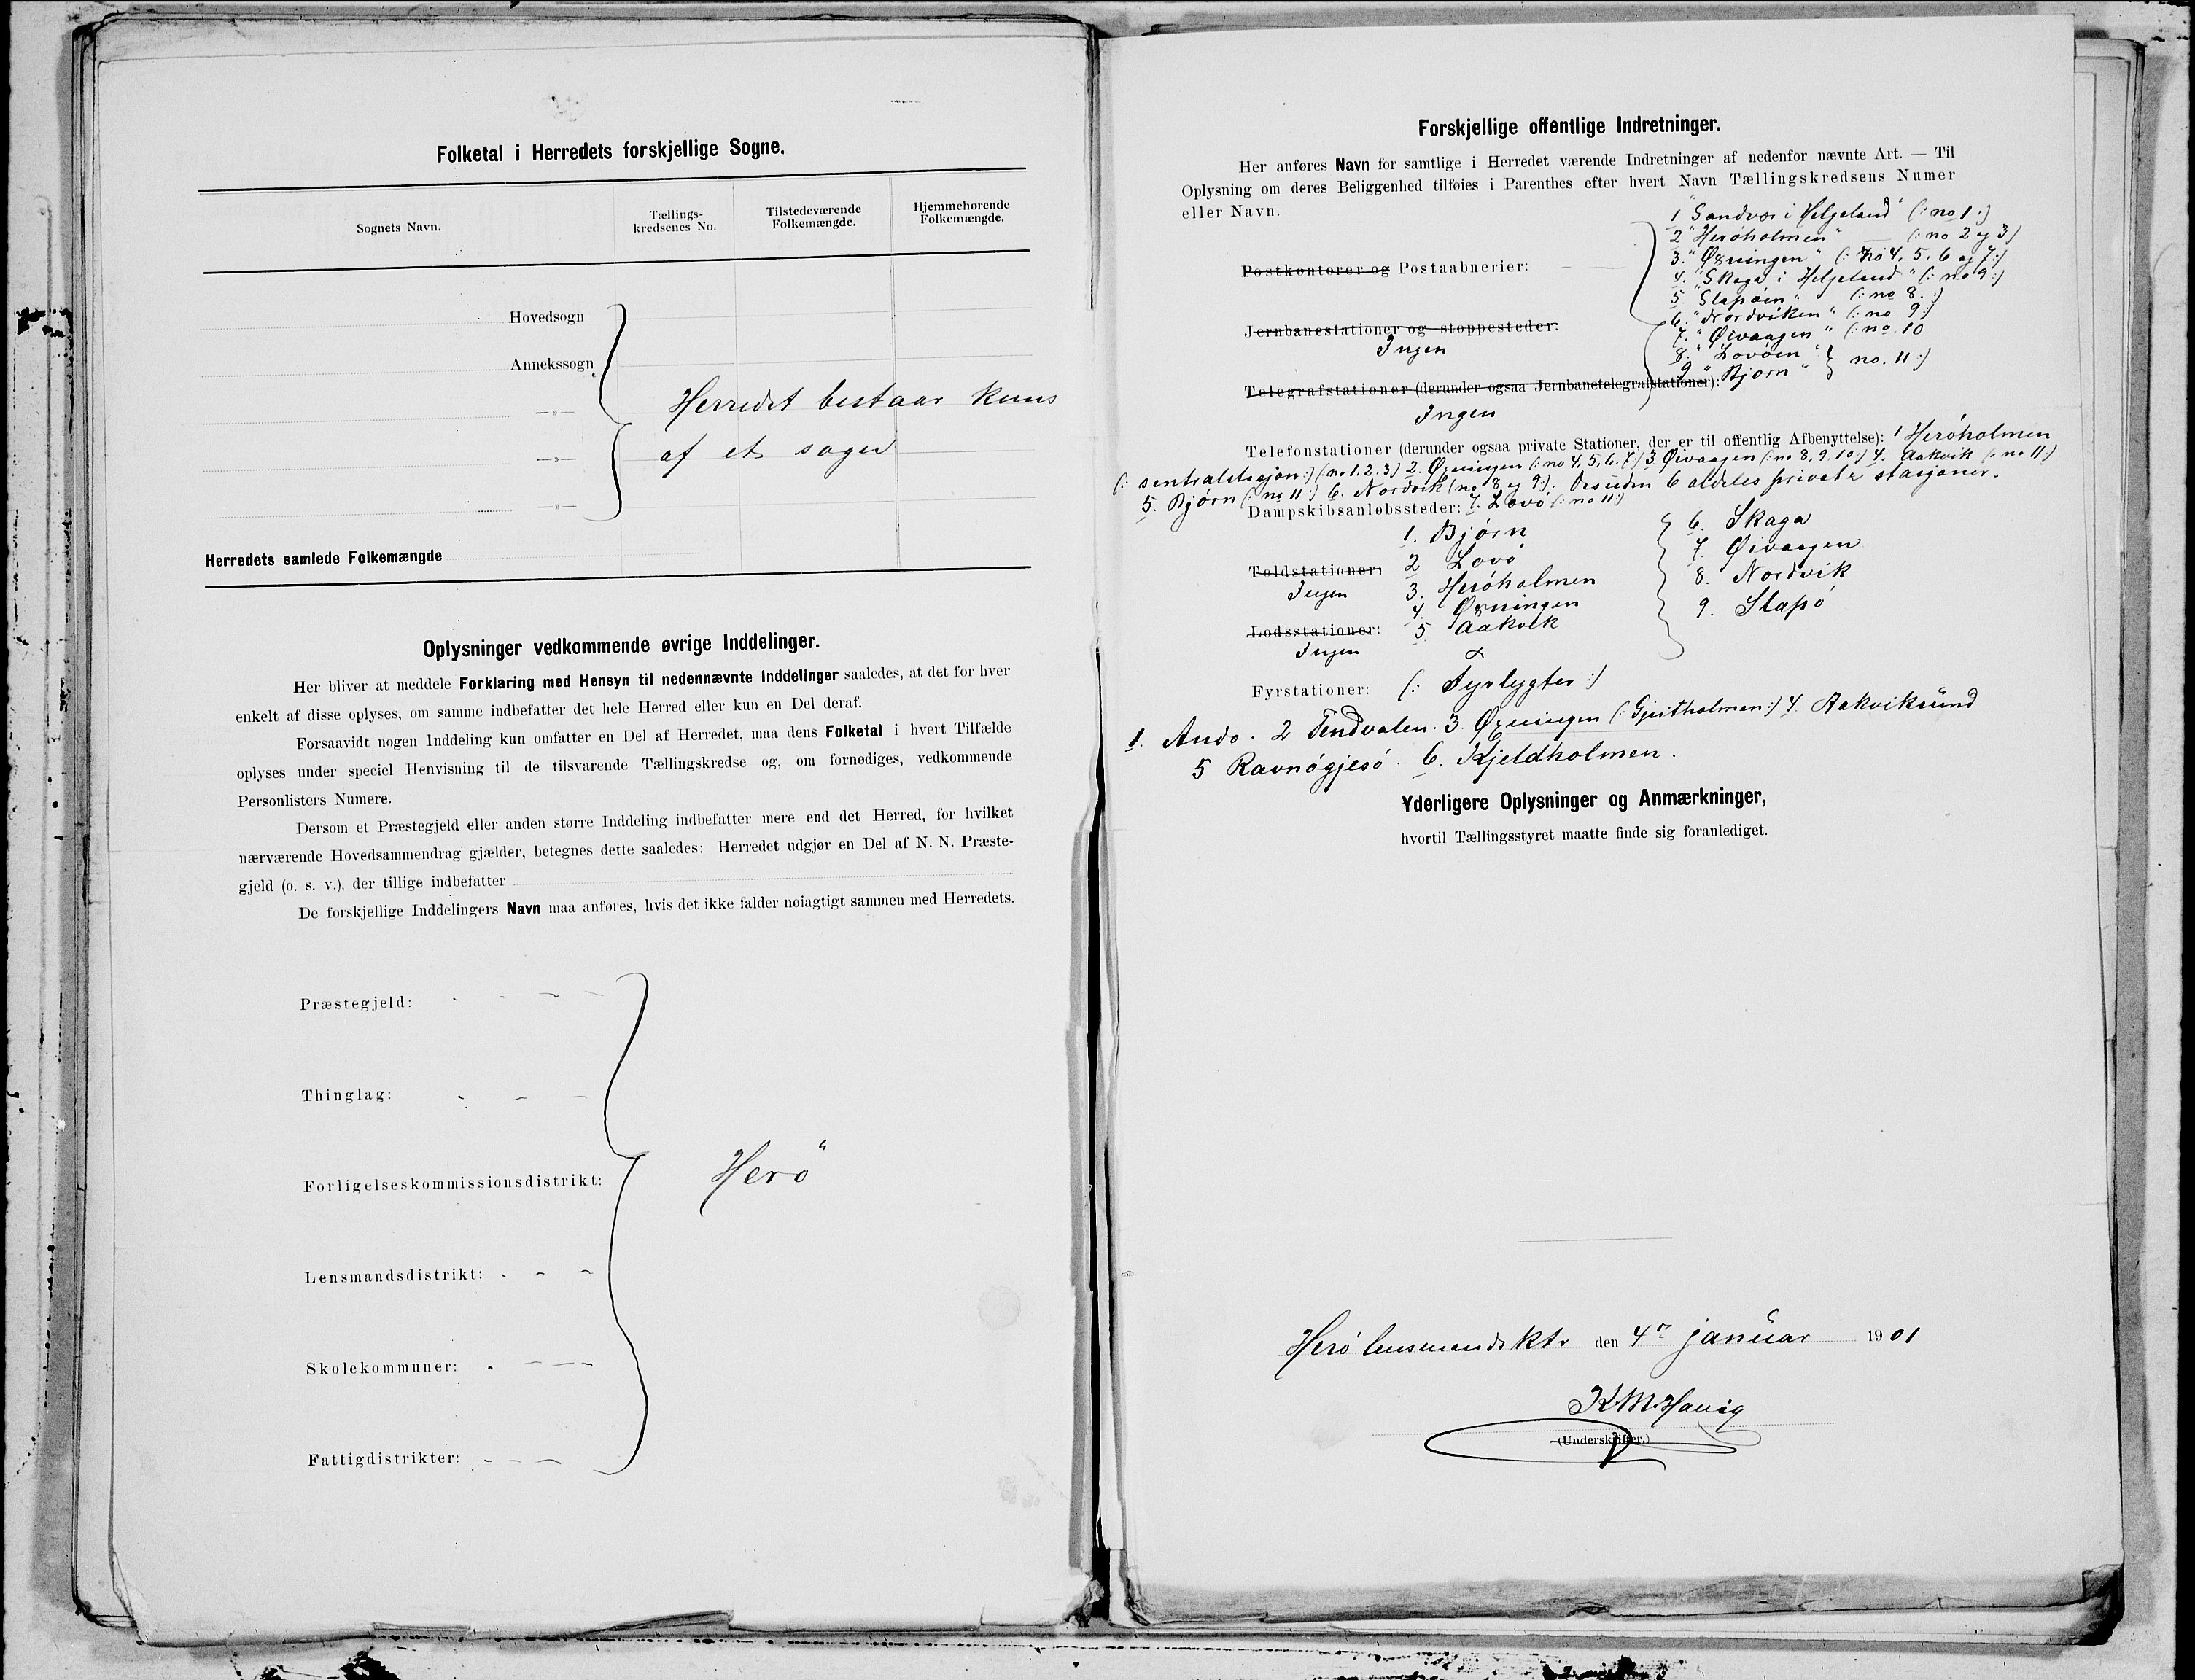 Folketal i Herredets forskjellige Sogne.
Sognets Navn.
Tællings-
kredsenes No.
Tilstedeværende
Folkemængde.
Hjemmehørende
Folkemængde.
Hovedsogn
Annekssogn
—»—
Herredet bestaar kuns
af et sogn
—»—
—»—
Herredets samlede Folkemængde
Oplysninger vedkommende øvrige Inddelinger.
Her bliver at meddele Forklaring med Hensyn til nedennævnte Inddelinger saaledes, at det for hver
enkelt af disse oplyses, om samme indbefatter det hele Herred eller kun en Del deraf.
Forsaavidt nogen Inddeling kun omfatter en Del af Herredet, maa dens Folketal i hvert Tilfælde
oplyses under speciel Henvisning til de tilsvarende Tællingskredse og, om fornødiges, vedkommende
Personlisters Numere.
Dersom et Præstegjeld eller anden større Inddeling indbefatter mere end det Herred, for hvilket
nærværende Hovedsammendrag gjælder, betegnes dette saaledes: Herredet udgjør en Del af N. N. Præste-
gjeld (o. s. v.), der tillige indbefatter
De forskjellige Inddelingers Navn maa anføres, hvis det ikke falder nøiagtigt sammen med Herredets.
Præstegjeld:
Thinglag:
Forligelseskommissionsdistrikt:
Herö"
Lensmandsdistrikt:
Skolekommuner:
Fattigdistrikter:
Forskjellige offentlige Indretninger.
Her anføres Navn for samtlige i Herredet værende Indretninger af nedenfor nævnte Art. — Til
Oplysning om deres Beliggenhed tilføies i Parenthes efter hvert Navn Tællingskredsens Numer
eller Navn.
1 "Sandvær i Helgeland" (: no 1 :)
2 "Heröholmen" — (: no 2 og 3)
3. "Øxningen" (: no 4, 5, 6 og 7 :)
Postkontorer og Postaabnerier:
4. "Skaga i Helgeland" (: no 9 :)
5 "Slapöen" (: no 8. :)
6. "Nordviken" (: no 9 :)
7. "Øivaagen" (: no 10
Jernbanestationer og -stoppesteder:
Ingen
8. "Lovöen"
9 "Bjørn" } no. 11 :)
Telegrafstationer (derunder ogsaa Jernbanetelegrafstationer):
Ingen
Telefonstationer (derunder ogsaa private Stationer, der er til offentlig Afbenyttelse): 1 Heröholmen
(: sentralstasjon :) (: no 1, 2, 3) 2. Øxningen (: no 4, 5, 6, 7 :) 3 Øivaagen (: no 8, 9, 10 :) 4. Aakvik (: no 11 :)
5. Bjørn (: no 11 :) 6. Nordvik (no 8 og 9 :). Desuden 6 aldeles private stasjoner.
Dampskibsanløbssteder: 7. Lovö (: no 11 :)
1. Bjørn
2 Lovö
3. Heröholmen
4. Øxningen
5 Aakvik
6. Skaga
7. Øivaagen
8. Nordvik
9. Slapö
Toldstationer:
Ingen
Lodsstationer:
Ingen
Fyrstationer: (: Fyrlygter :)
1. Andö. 2 Tendvalen. 3 Øxningen (: Gjeitholmen :) 4. Aakviksund
5 Ravnögjesö. 6. Kjeldholmen.
Yderligere Oplysninger og Anmærkninger,
hvortil Tællingsstyret maatte finde sig foranlediget.
Herö lensmandsktr den 4de januar 1901
K M. Hauig
(Underskrifter.)